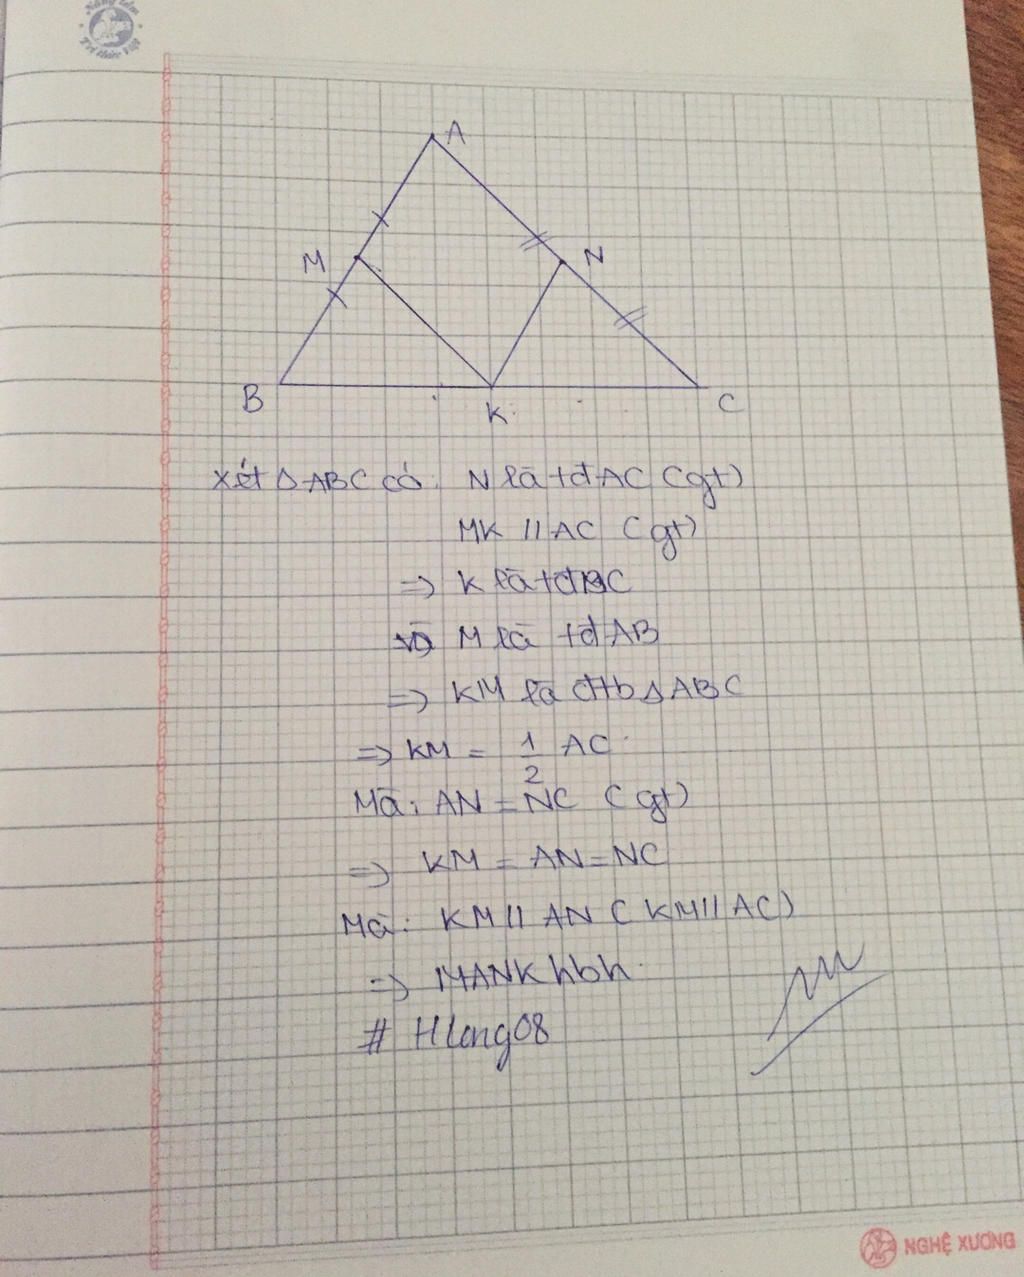 Nâng tầm
Trí thức Việt
A
M
N
B
K
C
Xét Δ ABC có: N là tđ AC (gt)
MK // AC (gt)
=> K là tđ BC
và M là tđ AB
=> KM là đtb Δ ABC
=> KM = 1/2 AC
Mà: AN = NC (gt)
=> KM = AN = NC
Mà: KM // AN ( KM // AC)
=> MANK hbh
# HLong08
NGHỆ XƯƠNG